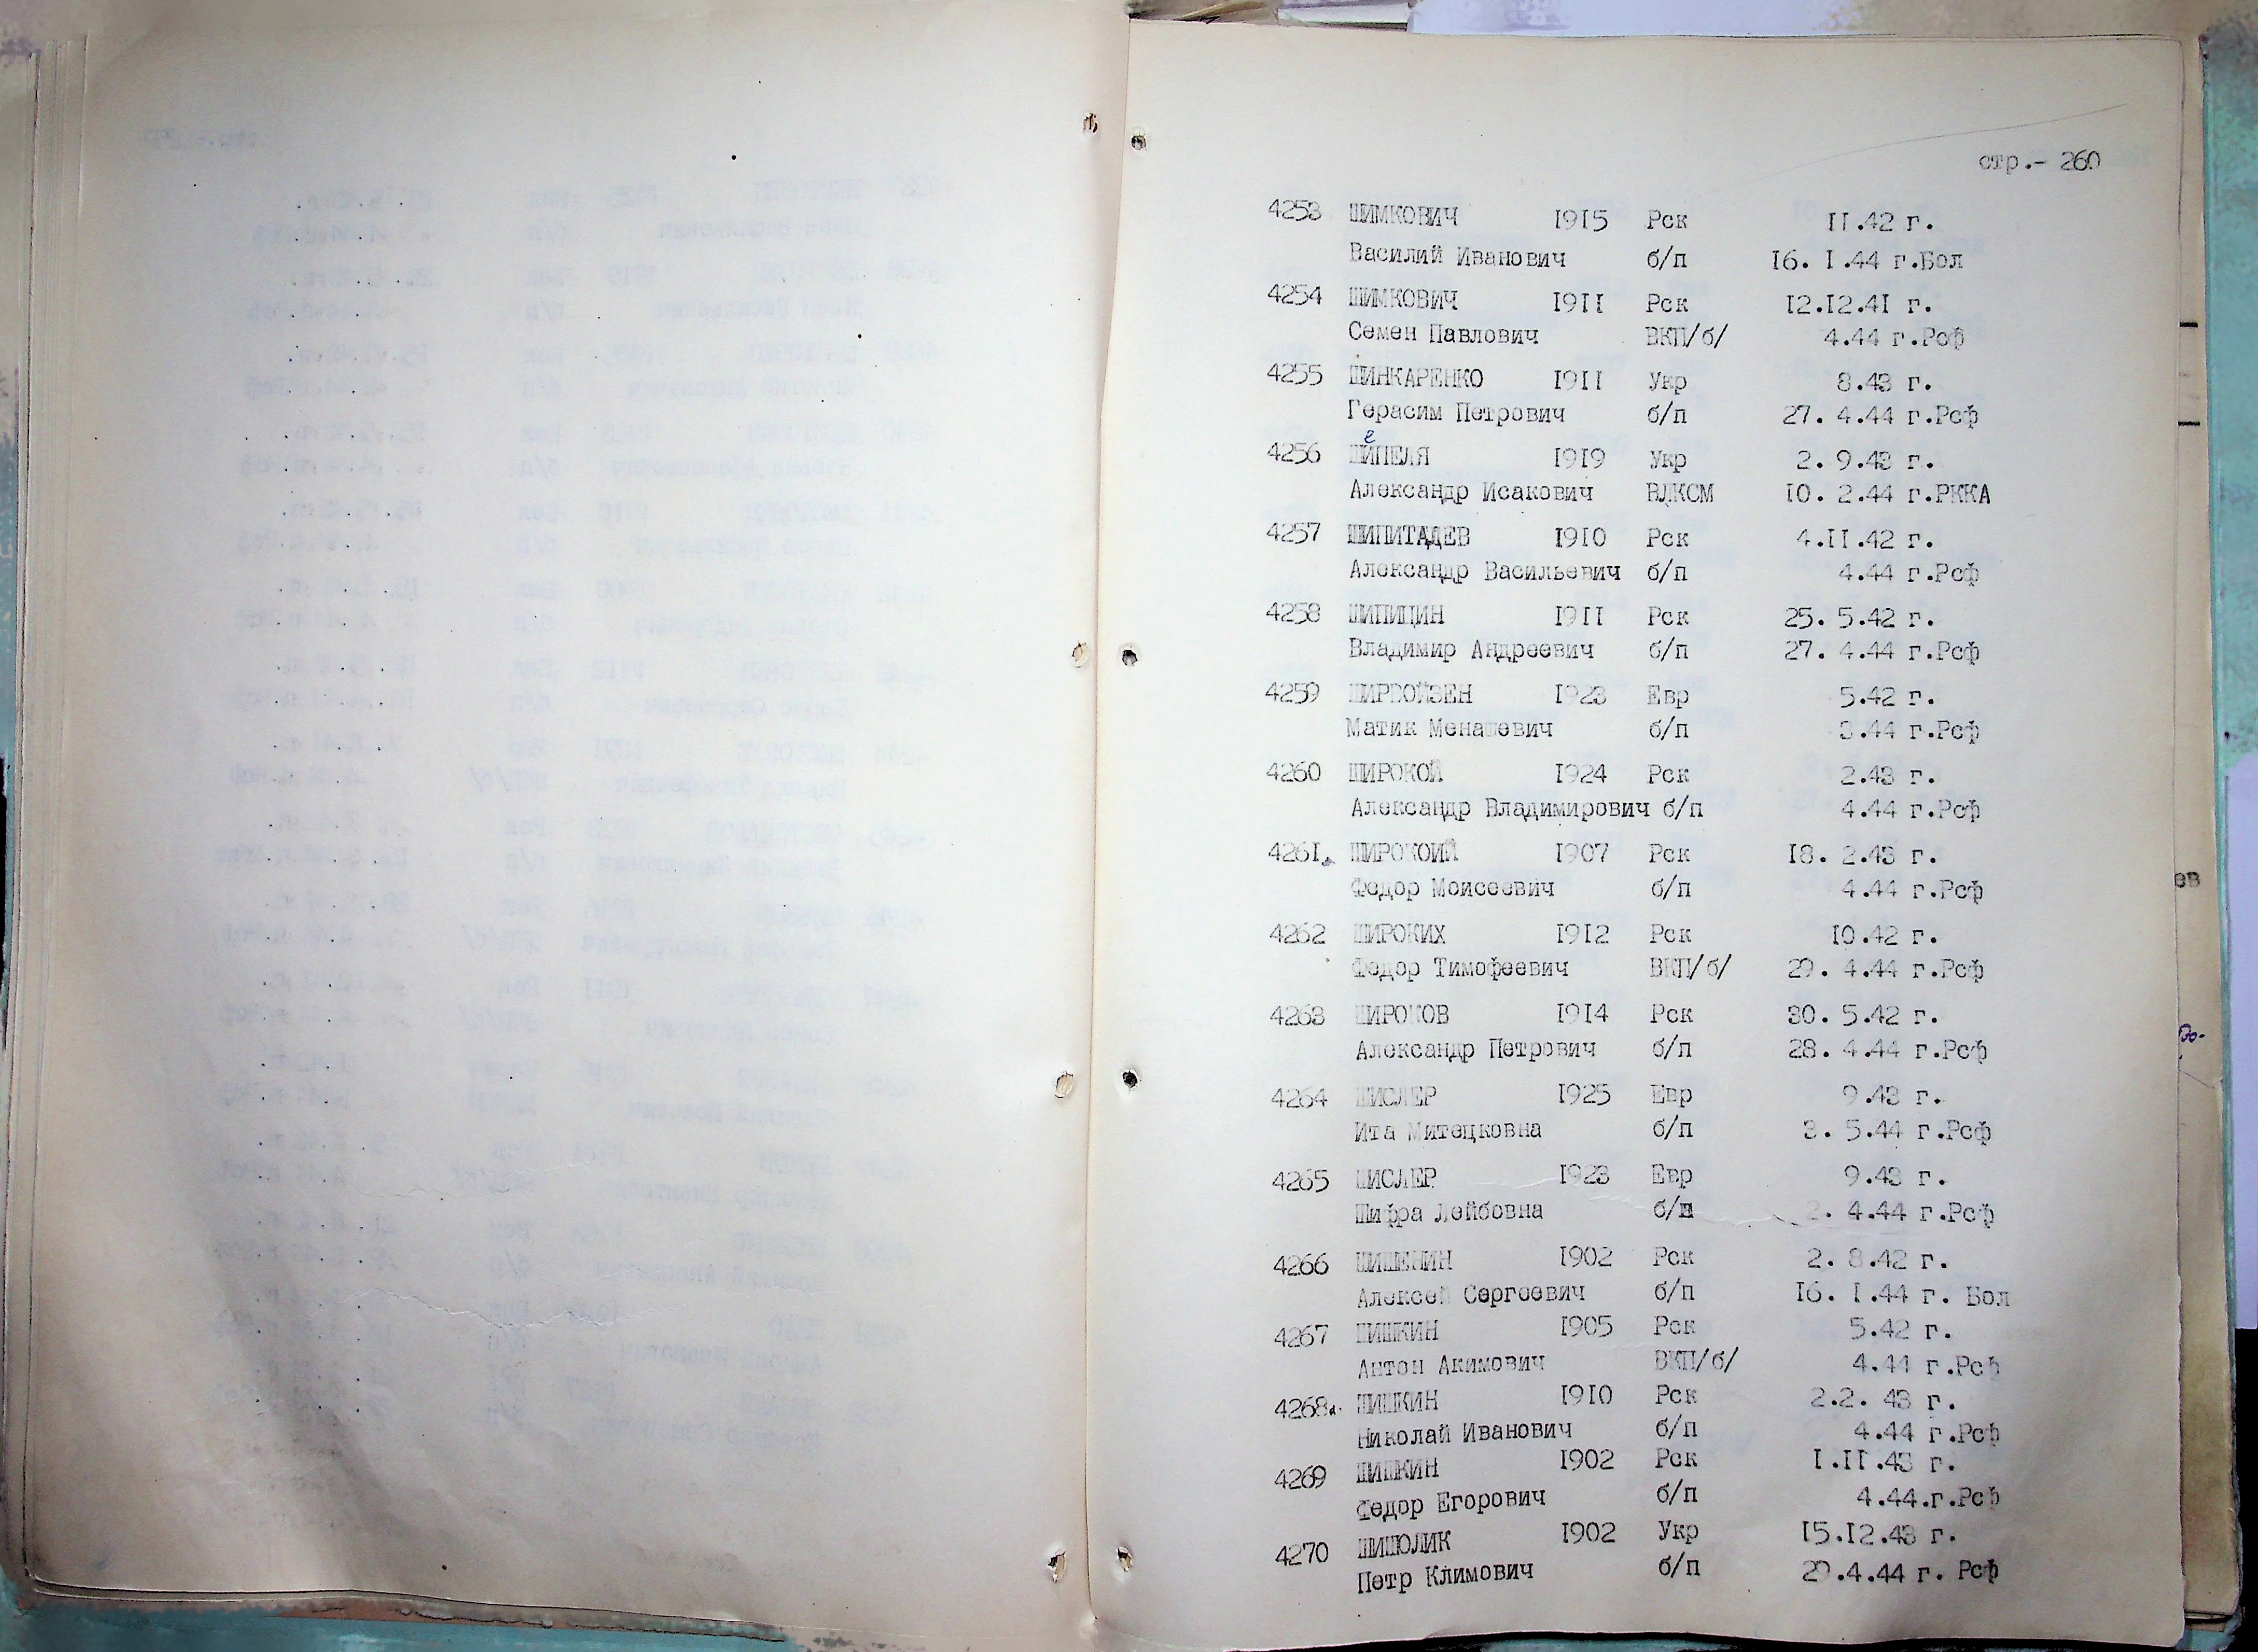 стр.- 260
4253 ШИМКОВИЧ 1915 Рск 11.42 г.
Василий Иванович б/п 16. 1.44 г.Бол
4254 ШИМКОВИЧ 1911 Рск 12.12.41 г.
Семен Павлович ВКП/б/ 4.44 г.Рсф
4255 ШИНКАРЕНКО 1911 Укр 8.43 г.
Герасим Петрович б/п 27. 4.44 г.Рсф
4256 ШИПЕЛЯ 1919 Укр 2. 9.43 г.
Александр Исакович ВЛКСМ 10. 2.44 г.РККА
4257 ШИПИТАДЕВ 1910 Рск 4.11.42 г.
Александр Васильевич б/п 4.44 г.Рсф
4258 ШИПИЦИН 1911 Рск 25. 5.42 г.
Владимир Андреевич б/п 27. 4.44 г.Рсф
4259 1923 Евр 5.42 г.
Матик Менашевич б/п 3.44 г.Рсф
4260 ШИРОКОЙ 1924 Рск 2.43 г.
Александр Владимирович б/п 4.44 г.Рсф
4261. ШИРОКОИЙ 1907 Рск 18. 2.43 г.
Федор Моисеевич б/п 4.44 г.Рсф
4262 ШИРОКИХ 1912 Рск 10.42 г.
Федор Тимофеевич ВКП/б/ 29. 4.44 г.Рсф
4263 ШИРОКОВ 1914 Рск 30. 5.42 г.
Александр Петрович б/п 28. 4.44 г.Рсф
4264 ШИСЛЕР 1925 Евр 9.43 г.
Ита Митецковна б/п 3. 5.44 г.Рсф
4265 ШИСЛЕР 1923 Евр 9.43 г.
Шифра Лейбовна б/п 2. 4.44 г.Рсф
4266 ШИШЕНИН 1902 Рск 2. 8.42 г.
Алексей Сергеевич б/п 16. 1.44 г. Бол
4267 ШИШКИН 1905 Рск 5.42 г.
Антон Акимович ВКП/б/ 4.44 г.Рсф
4268. ШИШКИН 1910 Рск 2.2. 43 г.
Николай Иванович б/п 4.44 г.Рсф
4269 ШИШКИН 1902 Рск 1.11.43 г.
Федор Егорович б/п 4.44.г.Рсф
4270 ШИШОЛИК 1902 Укр 15.12.43 г.
Петр Климович б/п 29.4.44 г. Рсф
ев